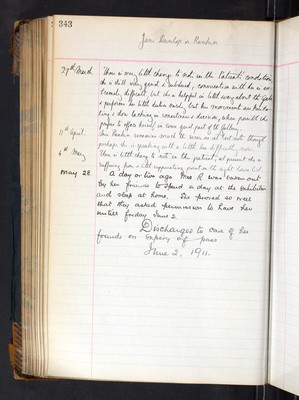 343
Jane Dunlop or Rankin
27th March There is very little change to note in the Patient's condition
she is still very quiet & subdued, conversation with her is ex-
tremely difficult, but she is helpful in little ways about the
& performs her little duties
& she is lacking in, when possible she
prefers to in some quiet part of the Gallery.
11th April. Mrs Rankin remains much the same as at last note though
perhaps she is speaking with a little less difficulty.
6th May There is little change to note in this patient, at present she is
suffering from a little suppurating on the right
May 28 A day or two ago Mrs R was taken out
by her friends to spend a day at the Exhibition
and sleep at home. She proved so well
that they asked permission to have her
until Friday June 2.
Discharged to care of her
friends on expiry of pass
June 2, 1911.